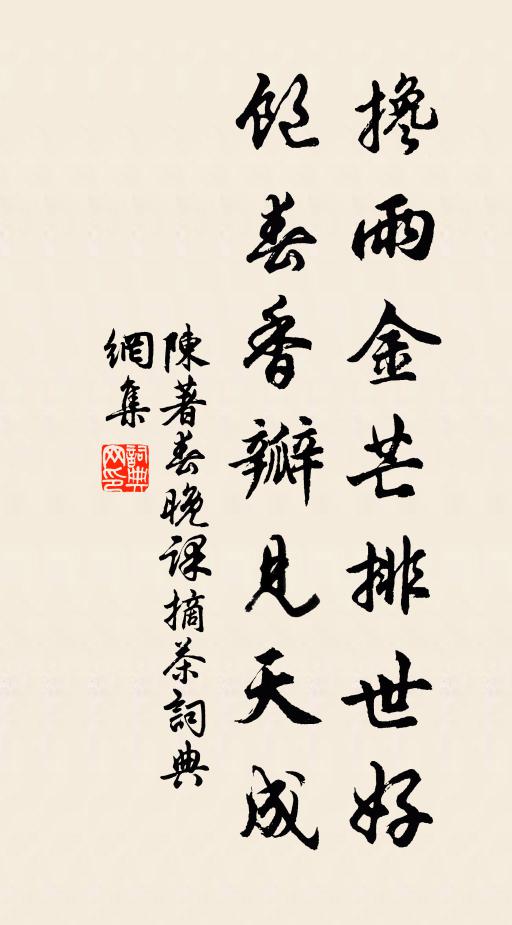 搀雨金芒排世好
饱春香瓣见天成
陳著春晚課摘茶詞典
網集
詞典
网印